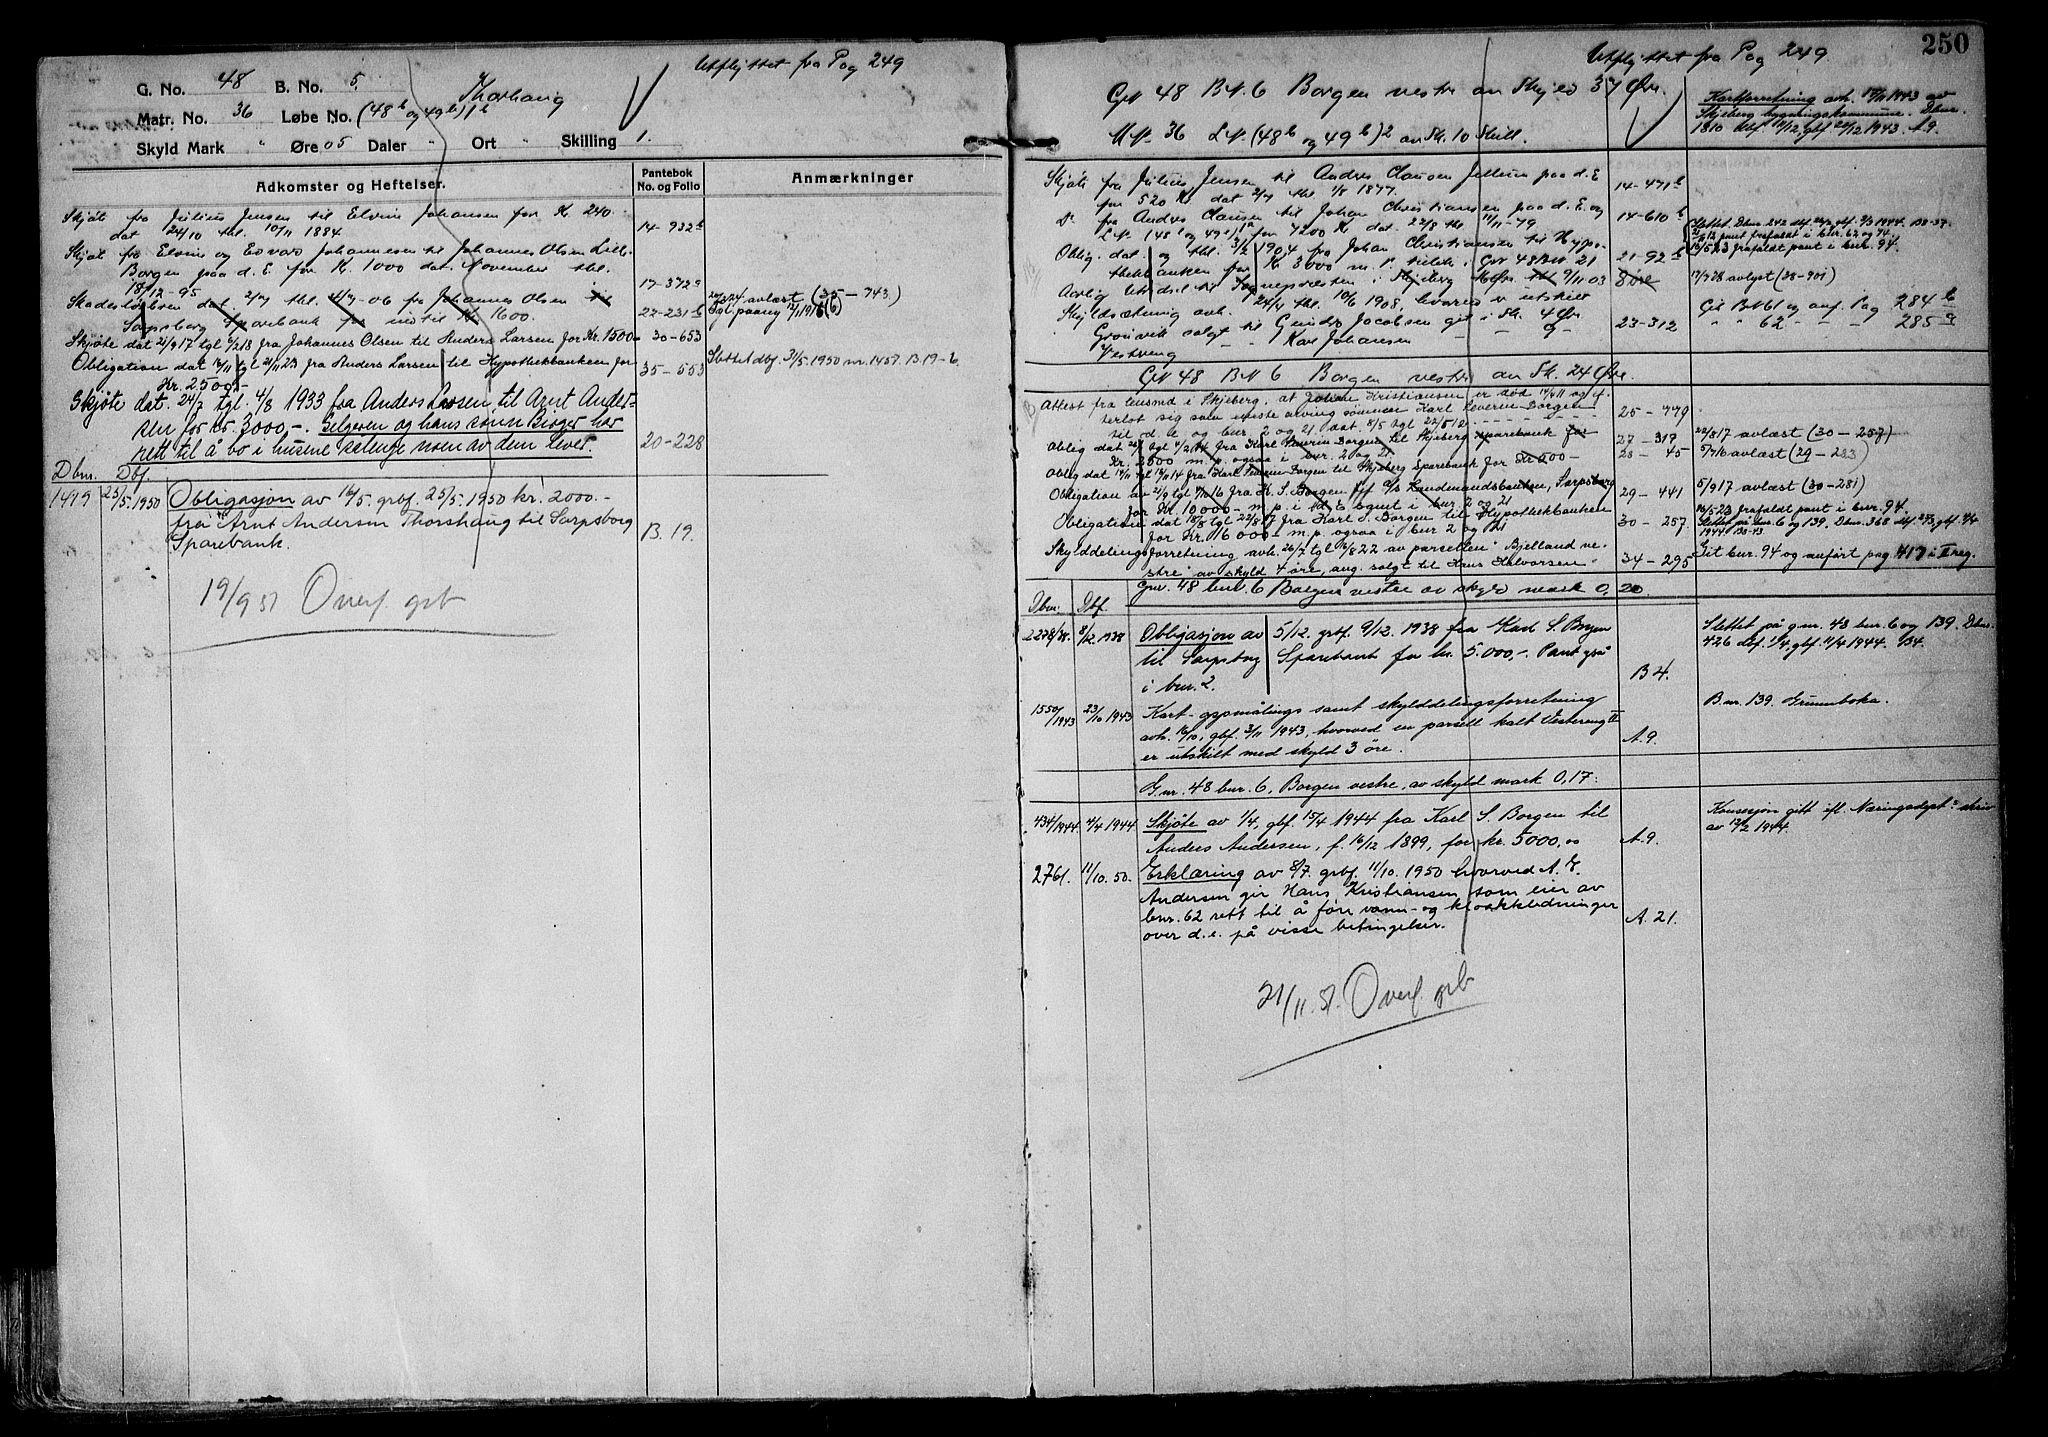 Utflyttet fra Pag 249
G. No. 48 B. No. 5. Thorhaug
Matr. No. 36 Løbe No. (48b og 49b)1b
Skyld Mark " Øre 05 Daler " Ort " Skilling 1.
Adkomster og Heftelser.
Pantebok No. og Folio
Anmærkninger
Skjøt fra Julius Jensen til Elvine Johansen for K. 240.
dat 24/10 thl. 10/11 1884. 14-932b
Skjøt fra Elvine og Edvard Johannesen til Johannes Olsen Lille
Borgen paa d. E for K. 1000 dat. November thl.
18/12-95 17-372a
Skadesløsbrev dat 2/7 thl. 4/7-06 fra Johannes Olsen til
Sarpsborg Sparebank for indtil Kr. 1600. 22-231b
avlæst (35-743.)
Skjøte dat 21/9 17 tgl 6/2 18 fra Johannes Olsen til Anders Larsen for Kr. 1500- 30-653
Obligation dat 16/11 tgl 21/11 23 fra Anders Larsen til Hypothekbanken for
Kr. 2500.- 35-553 Slettet dbf. 31/5. 1950 nr. 1457. B.19-6
Skjøte dat. 24/7 tgl. 4/8 1933 fra Anders Larsen til Arnt Ander-
sen for kr. 3000,-. Selgeren og hans sønn Birger har
rett til å bo i husene sålenge noen av dem lever. 20-228
Dbnr. Dbf.
1419 25/5.1950 Obligasjon av 16/5. grbf. 25/5. 1950 kr. 2000.-
fra Arnt Andersen Thorshaug til Sarpsborg
Sparebank. B. 19.
19/9 57 Overf. grb
Utflyttet fra Pag 249
250
GN 48 BN. 6 Borgen vestre an Skjeld 37 Øre.
MN. 36 LN. (48b og 49b)2 an Sk. 10 Skill.
Kartforretning avh. 17/11 1943 av
Skjeberg bygningskommune. Dbnr.
1810 dbf. 17/12, gbf. 22/12 1943. A.9.
Skjøte fra Julius Jensen til Andres Clausen Jelleum paa d. E
for 520 K. dat 2/7 thl 1/8 1877. 14-471b
Do fra Andres Clausen til Johan Christiansen paa d. E. og
for 7200 K dat. 22/8 thl 11/11-79 14-610b
Slettet. Dbnr. 242
Oblig. dat. og thl. 3/2 1904 fra Johan Christiansen til Hypo-
thekbanken for K 3000 m. p. tillike i GN 48 BN 21 21-92b
16/5 23 frafaldt pant i bnr. 94.
17/9 28 avlyst (28-901)
Skyldsætning avh. 24/4 thl. 10/6 1908, hvorved er utskilt
Grønvik solgt til Gundro Jacobsen git i Sk. 4 Øre 23-312 Git BN 61 og anf. Pag 284b
Vestreng " " Karl Johansen " " " 62 - - - 285a
GN 48 BN 6 Borgen vestre an Sk. 24 Øre.
Attest fra lensmd i Skjeberg, at Johan Kristiansen er død 14/6 11 og ef-
terlot sig som eneste arving sønnen Karl Severin Borgen
til d. e og bnr. 2 og 21 dat. 8/5 tgl 22/5 12. 25-779
Oblig dat tgl 4/2 14 fra Karl Severin Borgen til Skjeberg sparebank for
Kr. 2500 m. p. ogsaa i bnr. 2 og 21 27-319 22/8 17 avlæst (30-257)
Oblig dat 14/11 tgl 18/11 14 fra Karl Severin Borgen til Skjeberg Sparebank for Kr 500- 28-45 5/7 16 avlæst (29-283)
Obligation av 21/9 tgl 9/10 16 fra K. S. Borgen til A/S Landmandsbanken, Sarpsborg
for Kr. 10000- m. p. i bnr 2 og 21 29-441 5/9 17 avlæst (30-281)
Obligation dat 18/8 tgl 22/8 17 fra Karl S. Borgen til Hypothekbanken
for Kr. 16000- m. p. ogsaa i bnr 2 og 21 30-257. 16/5 23 frafaldt pant i bnr. 94.
Slettet på bnr. 6 og 139. Dbnr. 368
Skylddelingsforretning avh. 26/7 tgl 16/8 22 av parsellen "Bjelland ve-
stre" av skyld 4 øre, ang. solgt til Hans Halvorsen. 34-295 Git bnr. 94 og anført pag 417 i II reg.
Gnr. 48 bnr. 6 Borgen vestre av skyld mark 0,20
Dbnr. Dbf.
2278/38. 8/12 1938 Obligasjon av 5/12. grbf. 9/12. 1938 fra Karl S. Borgen
til Sarpsborg Sparebank for kr. 5.000,-. Pant også
i bnr. 2. B 4.
Slettet på g.nr. 48 bnr. 6 og 139. Dbnr.
426 dbf. 1/4, gbf. 11/4 1944. B4.
1550/1943 23/10 1943 Kart- oppmålings samt skylddelingsforretning
avh. 16/10, gbf. 3/11 1943, hvorved en parsell kalt Vestereng II
er utskilt med skyld 3 øre. A.9.
B.nr. 139. Grunnboka.
G.nr. 48 bnr. 6, Borgen vestre, av skyld mark 0,17.
434/1944 4/4 1944 Skjøte av 1/4, gbf. 15/4 1944 fra Karl S. Borgen til
Anders Andersen, f. 16/12 1899, for kr. 5000,00 A.9.
Konsesjon gitt ifl. Næringsdept.s skriv
av 12/2 1944.
2761. 11/10.50. Erklæring av 8/7. grbf. 11/10. 1950 hvorved A. E.
Andersen gir Hans Kristiansen som eier av
bnr. 62 rett til å føre vann- og kloakkledninger
over d. e. på visse betingelser. A. 21.
21/11.57. Overf. grb